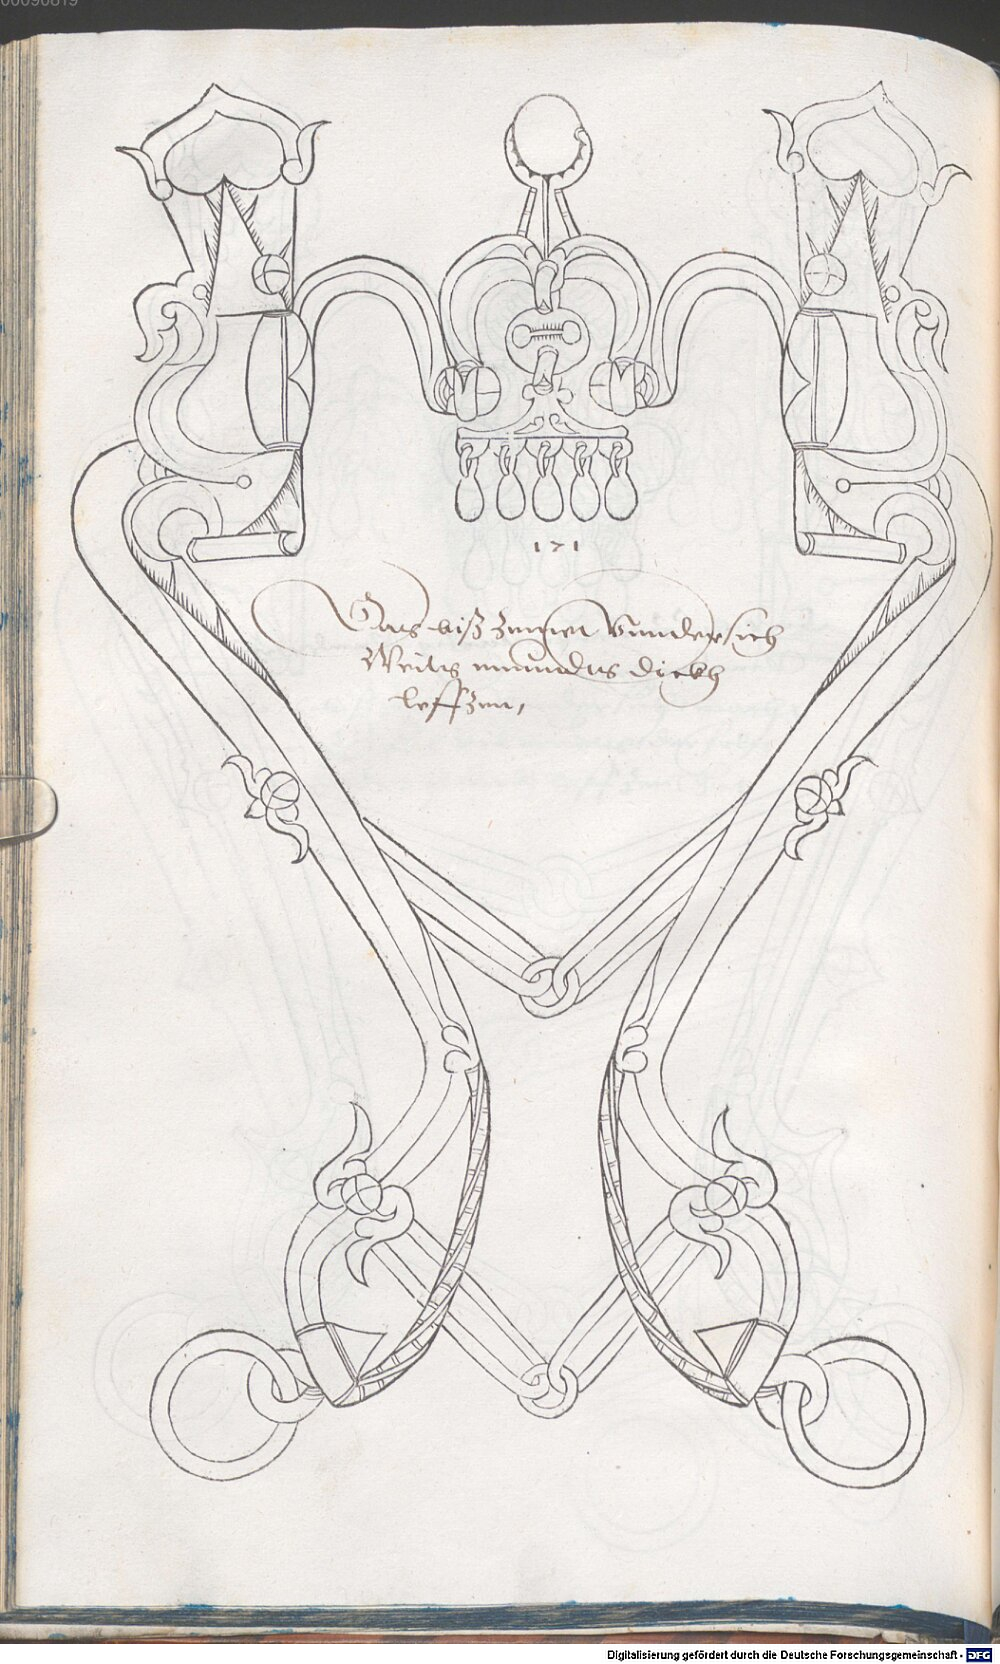 00090819
171
Das biß zeucht Vundersich
Weits munds dickh
leffzen,
Digitalisierung gefördert durch die Deutsche Forschungsgemeinschaft - DFG